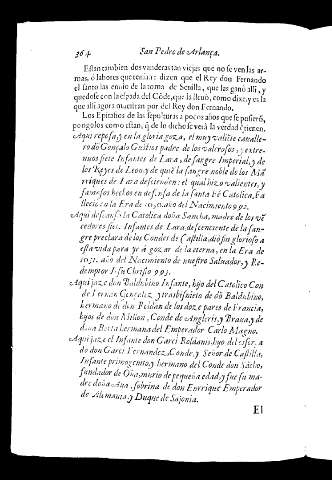 364 San Pedro de Arlança.
Estan tambien dos vanderas tan viejas que no se ven las ar-
mas, ó labores que tenian: dizen que el Rey don Fernando
el santo las embio de la toma de Sevilla, que las ganó alli, y
quedose con la espada del Cõde, que la llevó, como dixe, y es la
que alli agora muestran por del Rey don Fernando.
Los Epitafios de las sepulturas a pocos años que se pusierõ,
pongolos como estan, q̃ de lo dicho se verà la verdad q̃ tienen.
Aqui reposa, y en la gloria goza, el muy valiẽte cavalle-
ro don Gonçalo Gustios padre de los valerosos, y estre-
nuos siete Infantes de Lara, de sangre Imperial, y de
los Reyes de Leon, y de quiẽ la sangre noble de los Mã
rriques de Lara descienden: el qual hizo valientes, y
famosos hechos en defensa de la santa Fé Catolica, fa
llecio año del Nacimiento 992.
Aqui descansa la Catolica doña Sancha, madre de los vẽ
cedores siete Infantes de Lara, descendiente de la san-
gre preclara de los Condes de Castilla, dió fin glorioso a
esta vida para yr à gozar de la eterna, en la Era de
1031. año del Nacimiento de nuestro Salvador, y Re-
demptor Iesu Christo 993.
Aqui jaze don Baldobino Infante, hijo del Catolico Con
de Fernan Gonçalez y trasbisnieto de dõ Baldobino,
hermano de don Roldan de los doze pares de Francia,
hijos de don Milon, Conde de Angleris, y Brava, y de
doña Berta hermana del Emperador Carlo Magno.
Aqui jaze el Infante don Garci Roldanis, hijo del
don Garci Fernandez, Conde, y Señor de Castilla,
Infante primogenito, y hermano del Conde don Sãcho,
fundador de Oña, murio de pequeña edad, y fue su ma-
dre doña Ava, sobrina de don Enrrique Emperador
de Alemania, y Duque de Sajonia.
El